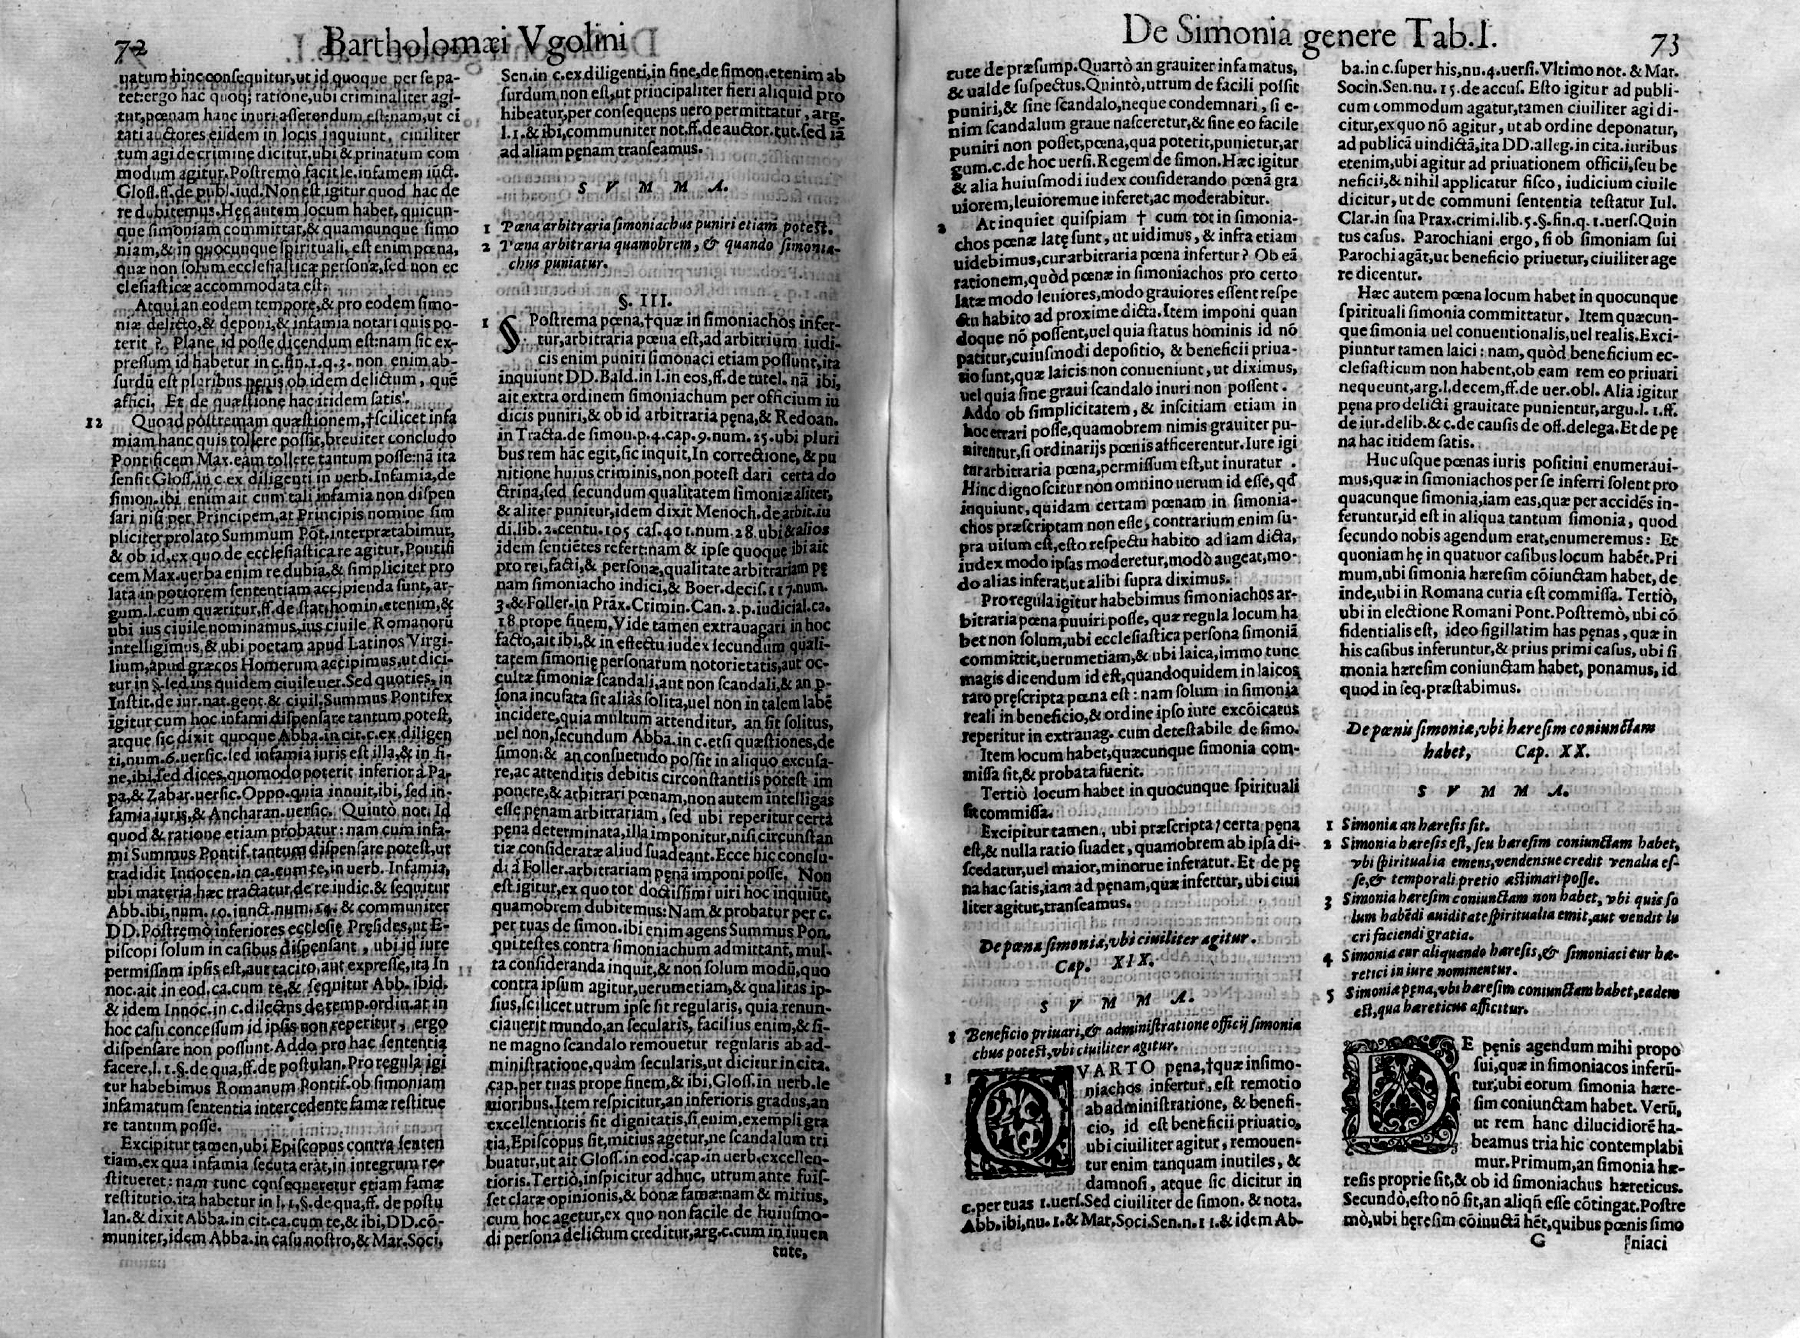 72 Bartholomæi Vgolini
natum hinc consequitur, ut id quoque per se pa-
tet: ergo hac quoq; ratione, ubi criminaliter agi-
tur, pœnam hanc inuri asserendum est: nam, ut ci
tati auctores eiusdem in locis inquiunt, ciuiliter
tum agi de crimine dicitur, ubi & priuatum com
modum agitur. Postremo facit l. e. infamem iuct.
Gloss. ff. de publ. iud. Non est igitur quod hac de
re dubitemus. Hęc autem locum habet, quicun-
que simoniam committat, & quamcunque simo
niam, & in quocunque spirituali, est enim pœna,
quæ non solum ecclesiasticæ personæ, sed non ec
clesiasticæ accommodata est.
Atqui an eodem tempore, & pro eodem simo-
niæ delicto, & deponi, & infamia notari quis po-
terit? Plane id posse dicendum est: nam sic ex-
pressum id habetur in c. fin. 1. q. 3. non enim ab-
surdũ est pluribus pęnis ob idem delictum, quẽ
affici. Et de quæstione hac itidem satis.
12 Quoad postremam quæstionem, †scilicet infa
miam hanc quis tollere possit, breuiter concludo
Pontificem Max. eam tollere tantum posse: nã ita
sensit Gloss. in c. ex diligenti in uerb. Infamia, de
simon. ibi enim ait cum tali infamia non dispen
sari nisi per Principem, at Principis nomine sim
pliciter prolato Summum Põt. interprætabimur,
& ob id, ex quo de ecclesiastica re agitur, Pontifi
cem Max. uerba enim re dubia, & simpliciter pro
lata in potiorem sententiam accipienda sunt, ar-
gum. l. cum quæritur, ff. de stat. homin. etenim, &
ubi ius ciuile nominamus, ius ciuile Romanorũ
intelligimus, & ubi poetam apud Latinos Virgi-
lium, apud græcos Homerum accipimus, ut dici-
tur in §. sed ius quidem ciuile uer. Sed quoties, in
Instit. de iur. nat. gent. & ciuil. Summus Pontifex
igitur cum hoc infami dispensare tantum potest,
atque sic dixit quoque Abba. in cit. c. ex diligen
ti, num. 6. uersic. sed infamia iuris est illa, & in fi-
ne, ibi, sed dices, quomodo poterit inferior à Pa-
pa, & Zabar. uersic. Oppo. quia innuit, ibi, sed in-
famia iuris, & Ancharan. uersic. Quintò not. Id
quod & ratione etiam probatur: nam cum infa-
mi Summus Pontif. tantum dispensare potest, ut
tradidit Innocen. in ca. cum te, in uerb. Infamia,
ubi materia hæc tractatur, de re iudic. & sequitur
Abb. ibi, num. 10. iunct. num. 14. & communiter
DD. Postremò inferiores ecclesię Pręsides, ut E-
piscopi solum in casibus dispensant, ubi id iure
permissum ipsis est, aut tacito, aut expresse, ita In
noc. ait in eod. ca. cum te, & sequitur Abb. ibid.
& idem Innoc. in c. dilectus de temp. ordin. at in
hoc casu concessum id ipsis non reperitur, ergo
dispensare non possunt. Addo pro hac sententia
facere, l. 1. §. de qua, ff. de postulan. Pro regula igi
tur habebimus Romanum Pontif. ob simoniam
infamatum sententia intercedente famæ restitue
re tantum posse.
Excipitur tamen, ubi Episcopus contra senten
tiam, ex qua infamia secuta erat, in integrum re-
stitueret: nam tunc consequeretur etiam famæ
restitutio. ita habetur in l. 1. §. de qua, ff. de postu
lan. & dixit Abba. in cit. ca. cum te, & ibi, DD. cõ-
muniter, idem Abba. in casu nostro, & Mar. Soci.
Sen. in c. ex diligenti, in fine, de simon. etenim ab
surdum non est, ut principaliter fieri aliquid pro
hibeatur, per consequens uero permittatur, arg.
l. 1. & ibi, communiter not. ff. de auctor. tut. sed iã
ad aliam pęnam transeamus.
S V M M A.
1 Pœna arbitraria simoniachus puniri etiam potest.
2 Pœna arbitraria quamobrem, & quando simonia-
chus puniatur.
§. III.
1 Postrema pœna, †quæ in simoniachos infer-
tur, arbitraria pœna est, ad arbitrium iudi-
cis enim puniri simonaci etiam possunt, ita
inquiunt DD. Bald. in l. in eos, ff. de tutel. nã ibi,
ait extra ordinem simoniachum per officium iu
dicis puniri, & ob id arbitraria pęna, & Redoan.
in Tracta. de simon. p. 4. cap. 9. num. 25. ubi pluri
bus rem hãc egit, sic inquit, In correctione, & pu
nitione huius criminis, non potest dari certa do
ctrina, sed secundum qualitatem simoniæ aliter,
& aliter punitur, idem dixit Menoch. de arbit. iu
di. lib. 2. centu. 105 cas. 401. num. 28. ubi & alios
idem sentiẽtes refert: nam & ipse quoque ibi ait
pro rei, facti, & personæ, qualitate arbitrariam pę
nam simoniacho indici, & Boer. decis. 117. num.
3. & Foller. in Prax. Crimin. Can. 2. p. iudicial. ca.
18. prope finem, Vide tamen extrauagari in hoc
facto, ait ibi, & in effectu iudex secundum quali-
tatem simonię personarum notorietatis, aut oc-
cultæ simoniæ scandali, aut non scandali, & an p-
sona incusata sit aliàs solita, uel non in talem labẽ
incidere, quia multum attenditur, an sit solitus,
uel non, secundum Abba. in c. etsi quæstiones, de
simon: & an consuetudo possit in aliquo excusa-
re, ac attenditis debitis circonstantiis potest im
ponere, & arbitrari pœnam, non autem intelligas
esse pęnam arbitrariam, sed ubi reperitur certa
pęna determinata, illa imponitur, nisi circunstan
tiæ consideratæ aliud suadeant. Ecce hic conclu-
di à Foller. arbitrariam pęnã imponi posse, Non
est igitur, ex quo tot doctissimi uiri hoc inquiũt,
quamobrem dubitemus: Nam & probatur per c.
per tuas de simon. ibi enim agens Summus Pon.
qui testes contra simoniachum admittant, mul-
ta consideranda inquit, & non solum modũ, quo
contra ipsum agitur, uerumetiam, & qualitas ip-
sius, scilicet utrum ipse sit regularis, quia renun-
ciauerit mundo, an secularis, facilius enim, & si-
ne magno scandalo remouetur regularis ab ad-
ministratione, quàm secularis, ut dicitur in cita.
cap. per tuas prope finem, & ibi, Gloss. in uerb. le
uioribus. Item respicitur, an inferioris gradus, an
excellentioris sit dignitatis, si, enim, exempli gra
tia, Episcopus sit, mitius agetur, ne scandalum tri
buatur, ut ait Gloss. in eod. cap. in uerb. excellen-
tioris. Tertiò, inspicitur adhuc, utrum ante fuis-
set claræ opinionis, & bonæ famæ: nam & mitius,
cum hoc agetur, ex quo non facile de huiusmo-
di persona delictum creditur, arg. c. cum in iuuen
tute,
De Simonia genere Tab. I. 73
tute de præsump. Quartò an grauiter infamatus,
& ualde suspectus. Quintò, utrum de facili possit
puniri, & sine scandalo, neque condemnari, si e-
nim scandalum graue nasceretur, & sine eo facile
puniri non posset, pœna, qua poterit, punietur, ar
gum. c. de hoc uersi. Regem de simon. Hæc igitur
& alia huiusmodi iudex considerando pœnã gra
uiorem, leuioremue inferet, ac moderabitur.
2 At inquiet quispiam † cum tot in simonia-
chos pœnæ latę sunt, ut uidimus, & infra etiam
uidebimus, cur arbitraria pœna infertur? Ob eã
rationem, quòd pœnæ in simoniachos pro certo
latæ modo leuiores, modo grauiores essent respe
ctu habito ad proxime dicta. Item imponi quan
doque nõ possent, uel quia status hominis id nõ
patitur, cuiusmodi depositio, & beneficii priua-
tio sunt, quæ laicis non conueniunt, ut diximus,
uel quia sine graui scandalo inuri non possent.
Addo ob simplicitatem, & inscitiam etiam in
hoc errari posse, quamobrem nimis grauiter pu-
nirentur, si ordinarijs pœnis afficerentur. Iure igi
tur arbitraria pœna, permissum est, ut inuratur.
Hinc dignoscitur non omnino uerum id esse, qđ
inquiunt, quidam certam pœnam in simonia-
chos præscriptam non esse, contrarium enim su-
pra uisum est, esto respectu habito ad iam dicta,
iudex modo ipsas moderetur, modò augeat, mo-
do alias inferat, ut alibi supra diximus.
Pro regula igitur habebimus simoniachos ar-
bitraria pœna puuiri posse, quæ regula locum ha
bet non solum, ubi ecclesiastica persona simoniã
committit, uerumetiam, & ubi laica, immo tunc
magis dicendum id est, quandoquidem in laicos
raro pręscripta pœna est: nam solum in simonia
reali in beneficio, & ordine ipso iure excõicatus
reperitur in extrauag. cum detestabile de simo.
Item locum habet, quæcunque simonia com-
missa sit, & probata fuerit.
Tertiò locum habet in quocunque spirituali
sit commissa.
Excipitur tamen, ubi præscripta, certa pęna
est, & nulla ratio suadet, quamobrem ab ipsa di-
scedatur, uel maior, minorue inferatur. Et de pę
na hac satis, iam ad pęnam, quæ infertur, ubi ciui
liter agitur, transeamus.
De pœna simoniæ, vbi ciuiliter agitur.
Cap. XIX.
S V M M A.
1 Beneficio priuari, & administratione officij simonia
chus potest, vbi ciuiliter agitur.
1 QVARTO pęna, †quæ in simo-
niachos infertur, est remotio
ab administratione, & benefi-
cio, id est beneficii priuatio,
ubi ciuiliter agitur, remouen-
tur enim tanquam inutiles, &
damnosi, atque sic dicitur in
c. per tuas 1. uers. Sed ciuiliter de simon. & nota.
Abb. ibi, nu. 1. & Mar. Soci. Sen. n. 11. & idem Ab-
ba. in c. super his, nu. 4. uersi. Vltimo not. & Mar.
Socin. Sen. nu. 15. de accus. Esto igitur ad publi-
cum commodum agatur, tamen ciuiliter agi di-
citur, ex quo nõ agitur, ut ab ordine deponatur,
ad publicã uindictã, ita DD. alleg. in cita. iuribus
etenim, ubi agitur ad priuationem officii, seu be
neficii, & nihil applicatur fisco, iudicium ciuile
dicitur, ut de communi sententia testatur Iul.
Clar. in sua Prax. crimi. lib. 5. §. fin. q. 1. uers. Quin
tus casus. Parochiani ergo, si ob simoniam sui
Parochi agãt, ut beneficio priuetur, ciuiliter age
re dicentur.
Hæc autem pœna locum habet in quocunque
spirituali simonia committatur. Item quæcun-
que simonia uel conuentionalis, uel realis. Exci-
piuntur tamen laici: nam, quòd beneficium ec-
clesiasticum non habent, ob eam rem eo priuari
nequeunt, arg. l. decem, ff. de uer. obl. Alia igitur
pęna pro delicti grauitate punientur, argu. l. 1. ff.
de iur. delib. & c. de causis de off. delega. Et de pę
na hac itidem satis.
Huc usque pœnas iuris positiui enumeraui-
mus, quæ in simoniachos per se inferri solent pro
quacunque simonia, iam eas, quæ per accidẽs in-
feruntur, id est in aliqua tantum simonia, quod
secundo nobis agendum erat, enumeremus: Et
quoniam hę in quatuor casibus locum habẽt. Pri
mum, ubi simonia hæresim cõiunctam habet, de
inde, ubi in Romana curia est commissa. Tertiò,
ubi in electione Romani Pont. Postremò, ubi cõ
fidentialis est, ideo sigillatim has pęnas, quæ in
his casibus inferuntur, & prius primi casus, ubi si
monia hæresim coniunctam habet, ponamus, id
quod in seq. præstabimus.
De pœnis simoniæ, vbi hæresim coniunctam
habet, Cap. XX.
S V M M A.
1 Simonia an hæresis sit.
2 Simonia hæresis est, seu hæresim coniunctam habet,
vbi spiritualia emens, vendensue credit venalia es-
se, & temporali pretio æstimari posse.
3 Simonia hæresim coniunctam non habet, vbi quis so
lum habẽdi auiditate spiritualia emit, aut vendit lu
cri faciendi gratia.
4 Simonia cur aliquando hæresis, & simoniaci cur hæ-
retici in iure nominentur.
5 Simoniæ pęna, vbi hæresim coniunctam habet, eadem
est, qua hæreticus afficitur.
DE pęnis agendum mihi propo
sui, quæ in simoniacos inferũ-
tur, ubi eorum simonia hære-
sim coniunctam habet. Verũ,
ut rem hanc dilucidiorẽ ha-
beamus tria hic contemplabi
mur. Primum, an simonia hæ-
resis proprie sit, & ob id simoniachus hæreticus.
Secundò, esto nõ sit, an aliqñ esse cõtingat. Postre
mò, ubi hęresim cõiunctã hẽt, quibus pœnis simo
G niaci